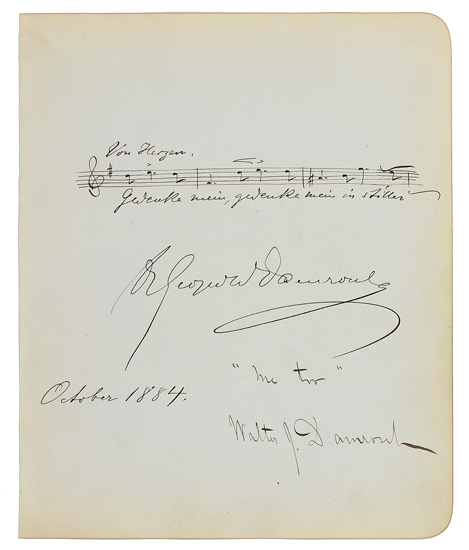 Von Herzen.
Gedenke mein, gedenke mein in stiller
Dr Leopold Damrosch
"me too"
October 1884.
Walter J. Damrosch